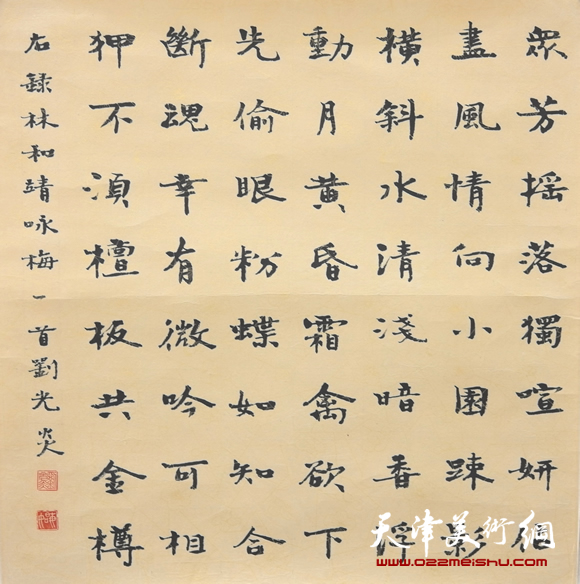 衆芳摇落獨喧妍佔
盡風情向小園疎影
橫斜水清淺暗香浮
動月黄昏霜禽欲下
先偷眼粉蝶如知合
斷魂幸有微吟可相
狎不須檀板共金樽
右録林和靖咏梅一首劉光炎
天津美術網
www.022meishu.com